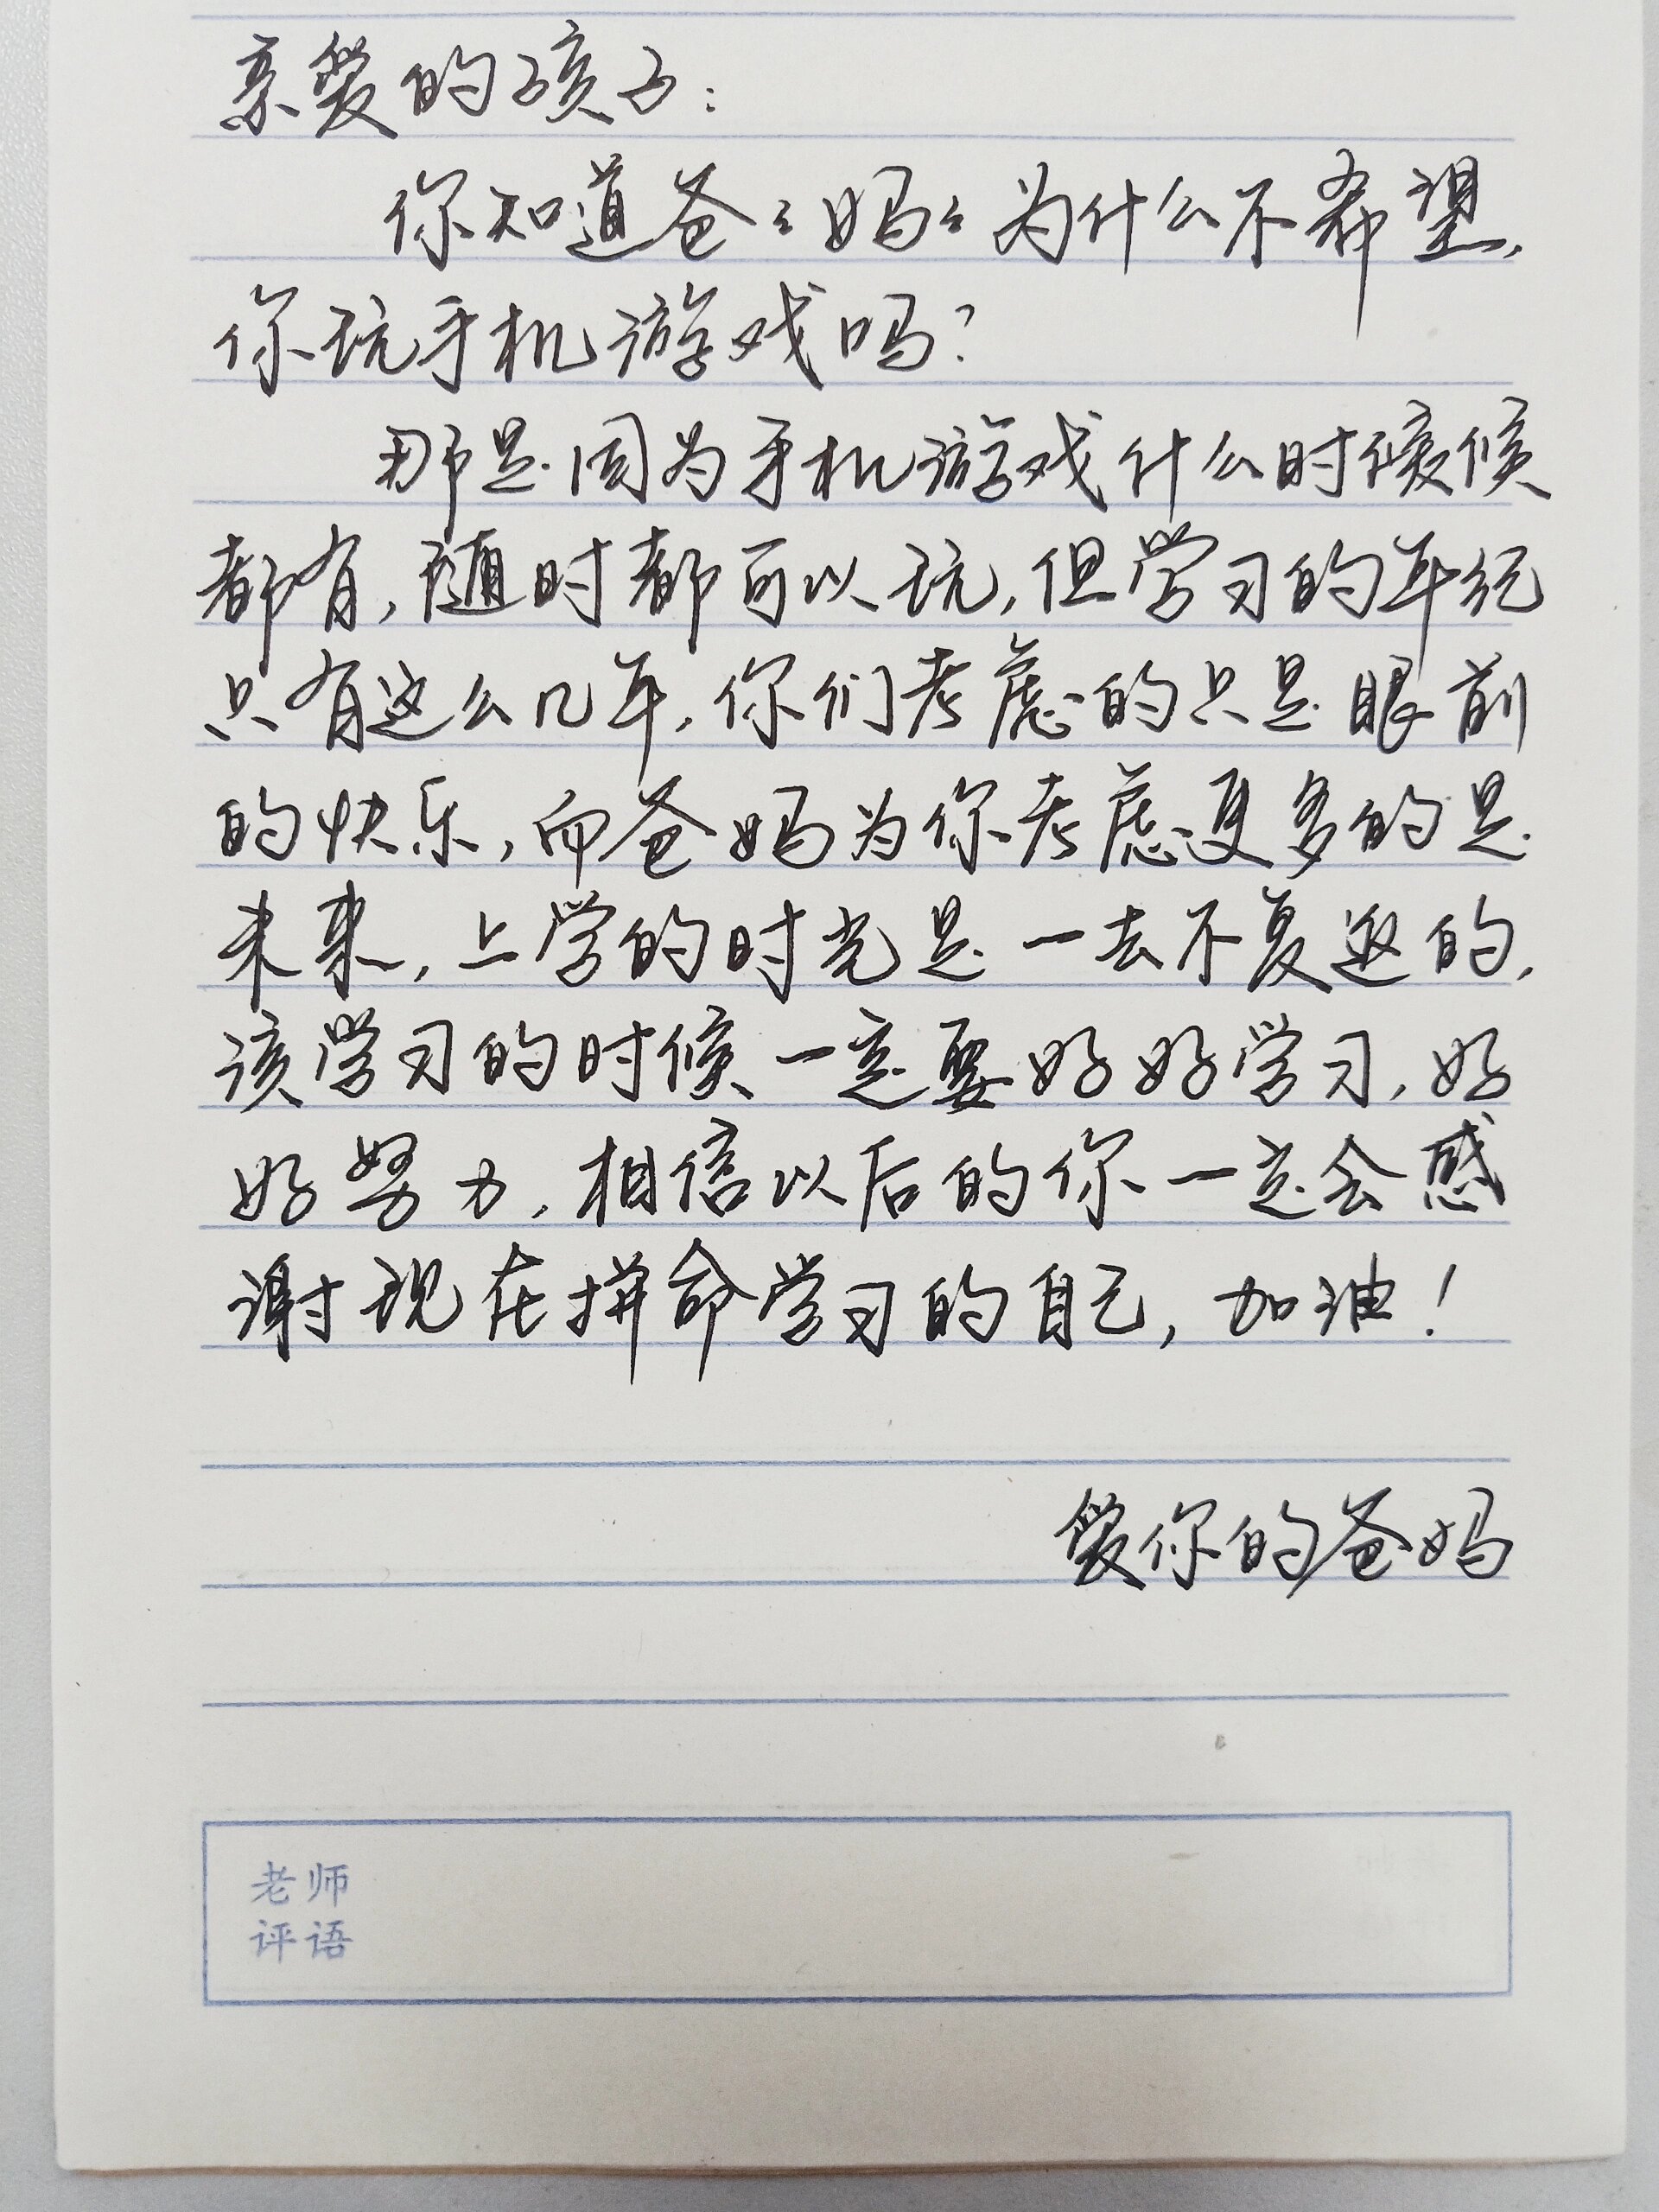 亲爱的孩子：
你知道爸々妈々为什么不希望,
你玩手机游戏吗？
那是因为手机游戏什么时候候
都有,随时都可以玩,但学习的年纪
只有这么几年,你们考虑的只是眼前
的快乐,而爸妈为你考虑更多的是
未来,上学的时光是一去不复返的,
该学习的时候一定要好好学习,好
好努力,相信以后的你一定会感
谢现在拼命学习的自己,加油！
爱你的爸妈
老师
评语